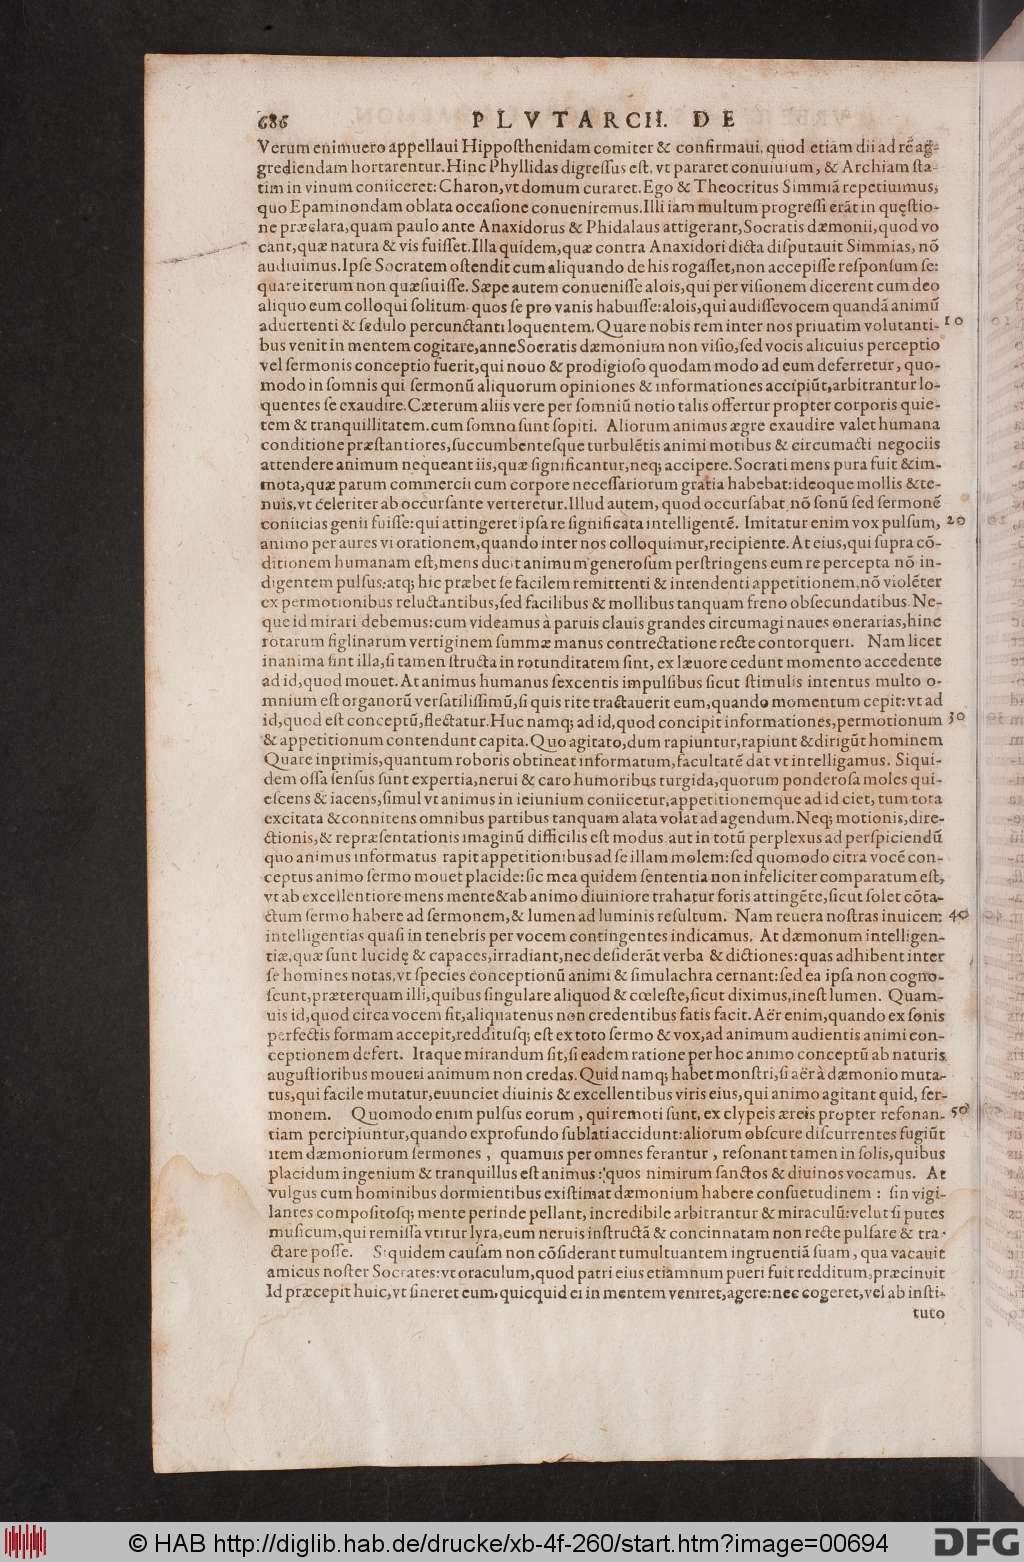 686 PLVTARCH. DE
Verum enimuero appellaui Hipposthenidam comiter & confirmaui, quod etiam dii ad rẽ ag-
grediendam hortarentur. Hinc Phyllidas digressus est, vt pararet conuiuium, & Archiam sta-
tim in vinum coniiceret: Charon, vt domum curaret. Ego & Theocritus Simmiã repetiuimus,
quo Epaminondam oblata occasione conueniremus. Illi iam multum progressi erãt in quęstio-
ne præclara, quam paulo ante Anaxidorus & Phidalaus attigerant, Socratis dæmonii, quod vo
cant, quæ natura & vis fuisset. Illa quidem, quæ contra Anaxidori dicta disputauit Simmias, nõ
audiuimus. Ipse Socratem ostendit cum aliquando de his rogasset, non accepisse responsum se:
quare iterum non quæsiuisse. Sæpe autem conuenisse alois, qui per visionem dicerent cum deo
aliquo eum colloqui solitum. quos se pro vanis habuisse: alois, qui audisse vocem quandã animũ
aduertenti & sedulo percunctanti loquentem. Quare nobis rem inter nos priuatim volutanti- 10
bus venit in mentem cogitare, anne Socratis dæmonium non visio, sed vocis alicuius perceptio
vel sermonis conceptio fuerit, qui nouo & prodigioso quodam modo ad eum deferretur, quo-
modo in somnis qui sermonũ aliquorum opiniones & informationes accipiũt, arbitrantur lo-
quentes se exaudire. Cæterum aliis vere per somniũ notio talis offertur propter corporis quie-
tem & tranquillitatem. cum somno sunt sopiti. Aliorum animus ægre exaudire valet humana
conditione præstantiores, succumbentesque turbulẽtis animi motibus & circumacti negociis
attendere animum nequeant iis, quæ significantur, neq; accipere. Socrati mens pura fuit & im-
mota, quæ parum commercii cum corpore necessariorum gratia habebat: ideoque mollis & te-
nuis, vt celeriter ab occursante verteretur. Illud autem, quod occursabat, nõ sonũ sed sermonẽ
coniicias genii fuisse: qui attingeret ipsa re significata intelligentẽ. Imitatur enim vox pulsum, 20
animo per aures vi orationem, quando inter nos colloquimur, recipiente. At eius, qui supra cõ-
ditionem humanam est, mens ducit animum generosum perstringens eum re percepta nõ in-
digentem pulsus: atq; hic præbet se facilem remittenti & intendenti appetitionem, nõ violẽter
ex permotionibus reluctantibus, sed facilibus & mollibus tanquam freno obsecundatibus. Ne-
que id mirari debemus: cum videamus à paruis clauis grandes circumagi naues onerarias, hinc
rotarum figlinarum vertiginem summæ manus contrectatione recte contorqueri. Nam licet
inanima sint illa, si tamen structa in rotunditatem sint, ex læuore cedunt momento accedente
ad id, quod mouet. At animus humanus sexcentis impulsibus sicut stimulis intentus multo o-
mnium est organorũ versatilissimũ, si quis rite tractauerit eum, quando momentum cepit: vt ad
id, quod est conceptũ, flectatur. Huc namq; ad id, quod concipit informationes, permotionum 30
& appetitionum contendunt capita. Quo agitato, dum rapiuntur, rapiunt & dirigũt hominem
Quare inprimis, quantum roboris obtineat informatum, facultatẽ dat vt intelligamus. Siqui-
dem ossa sensus sunt expertia, nerui & caro humoribus turgida, quorum ponderosa moles qui-
escens & iacens, simul vt animus in ieiunium coniicetur, appetitionemque ad id ciet, tum tota
excitata & connitens omnibus partibus tanquam alata volat ad agendum. Neq; motionis, dire-
ctionis, & repræsentationis imaginũ difficilis est modus aut in totũ perplexus ad perspiciendũ
quo animus informatus rapit appetitionibus ad se illam molem: sed quomodo citra vocẽ con-
ceptus animo sermo mouet placide: sic mea quidem sententia non infeliciter comparatum est,
vt ab excellentiore mens mente & ab animo diuiniore trahatur foris attingẽte, sicut solet cõta-
ctum sermo habere ad sermonem, & lumen ad luminis resultum. Nam reuera nostras inuicem 40
intelligentias quasi in tenebris per vocem contingentes indicamus. At dæmonum intelligen-
tiæ, quæ sunt lucidę & capaces, irradiant, nec desiderãt verba & dictiones: quas adhibent inter
se homines notas, vt species conceptionũ animi & simulachra cernant: sed ea ipsa non cogno-
scunt, præterquam illi, quibus singulare aliquod & cœleste, sicut diximus, inest lumen. Quam-
uis id, quod circa vocem fit, aliquatenus non credentibus fatis facit. Aër enim, quando ex sonis
perfectis formam accepit, redditusq; est ex toto sermo & vox, ad animum audientis animi con-
ceptionem defert. Itaque mirandum sit, si eadem ratione per hoc animo conceptũ ab naturis
augustioribus moueri animum non credas. Quid namq; habet monstri, si aër à dæmonio muta-
tus, qui facile mutatur, euunciet diuinis & excellentibus viris eius, qui animo agitant quid, ser-
monem. Quomodo enim pulsus eorum, qui remoti sunt, ex clypeis æreis propter resonan- 50
tiam percipiuntur, quando ex profundo sublati accidunt: aliorum obscure discurrentes fugiũt
item dæmoniorum sermones, quamuis per omnes ferantur, resonant tamen in solis, quibus
placidum ingenium & tranquillus est animus: quos nimirum sanctos & diuinos vocamus. At
vulgus cum hominibus dormientibus existimat dæmonium habere consuetudinem: sin vigi-
lantes compositosq; mente perinde pellant, incredibile arbitrantur & miraculũ: velut si putes
musicum, qui remissa vtitur lyra, eum neruis instructã & concinnatam non recte pulsare & tra-
ctare posse. Siquidem causam non cõsiderant tumultuantem ingruentiã suam, qua vacauit
amicus noster Socrates: vt oraculum, quod patri eius etiamnum pueri fuit redditum, præcinuit
Id præcepit huic, vt sineret eum, quicquid ei in mentem veniret, agere: nec cogeret, vel ab insti-
tuto
© HAB http://diglib.hab.de/drucke/xb-4f-260/start.htm?image=00694
DFG